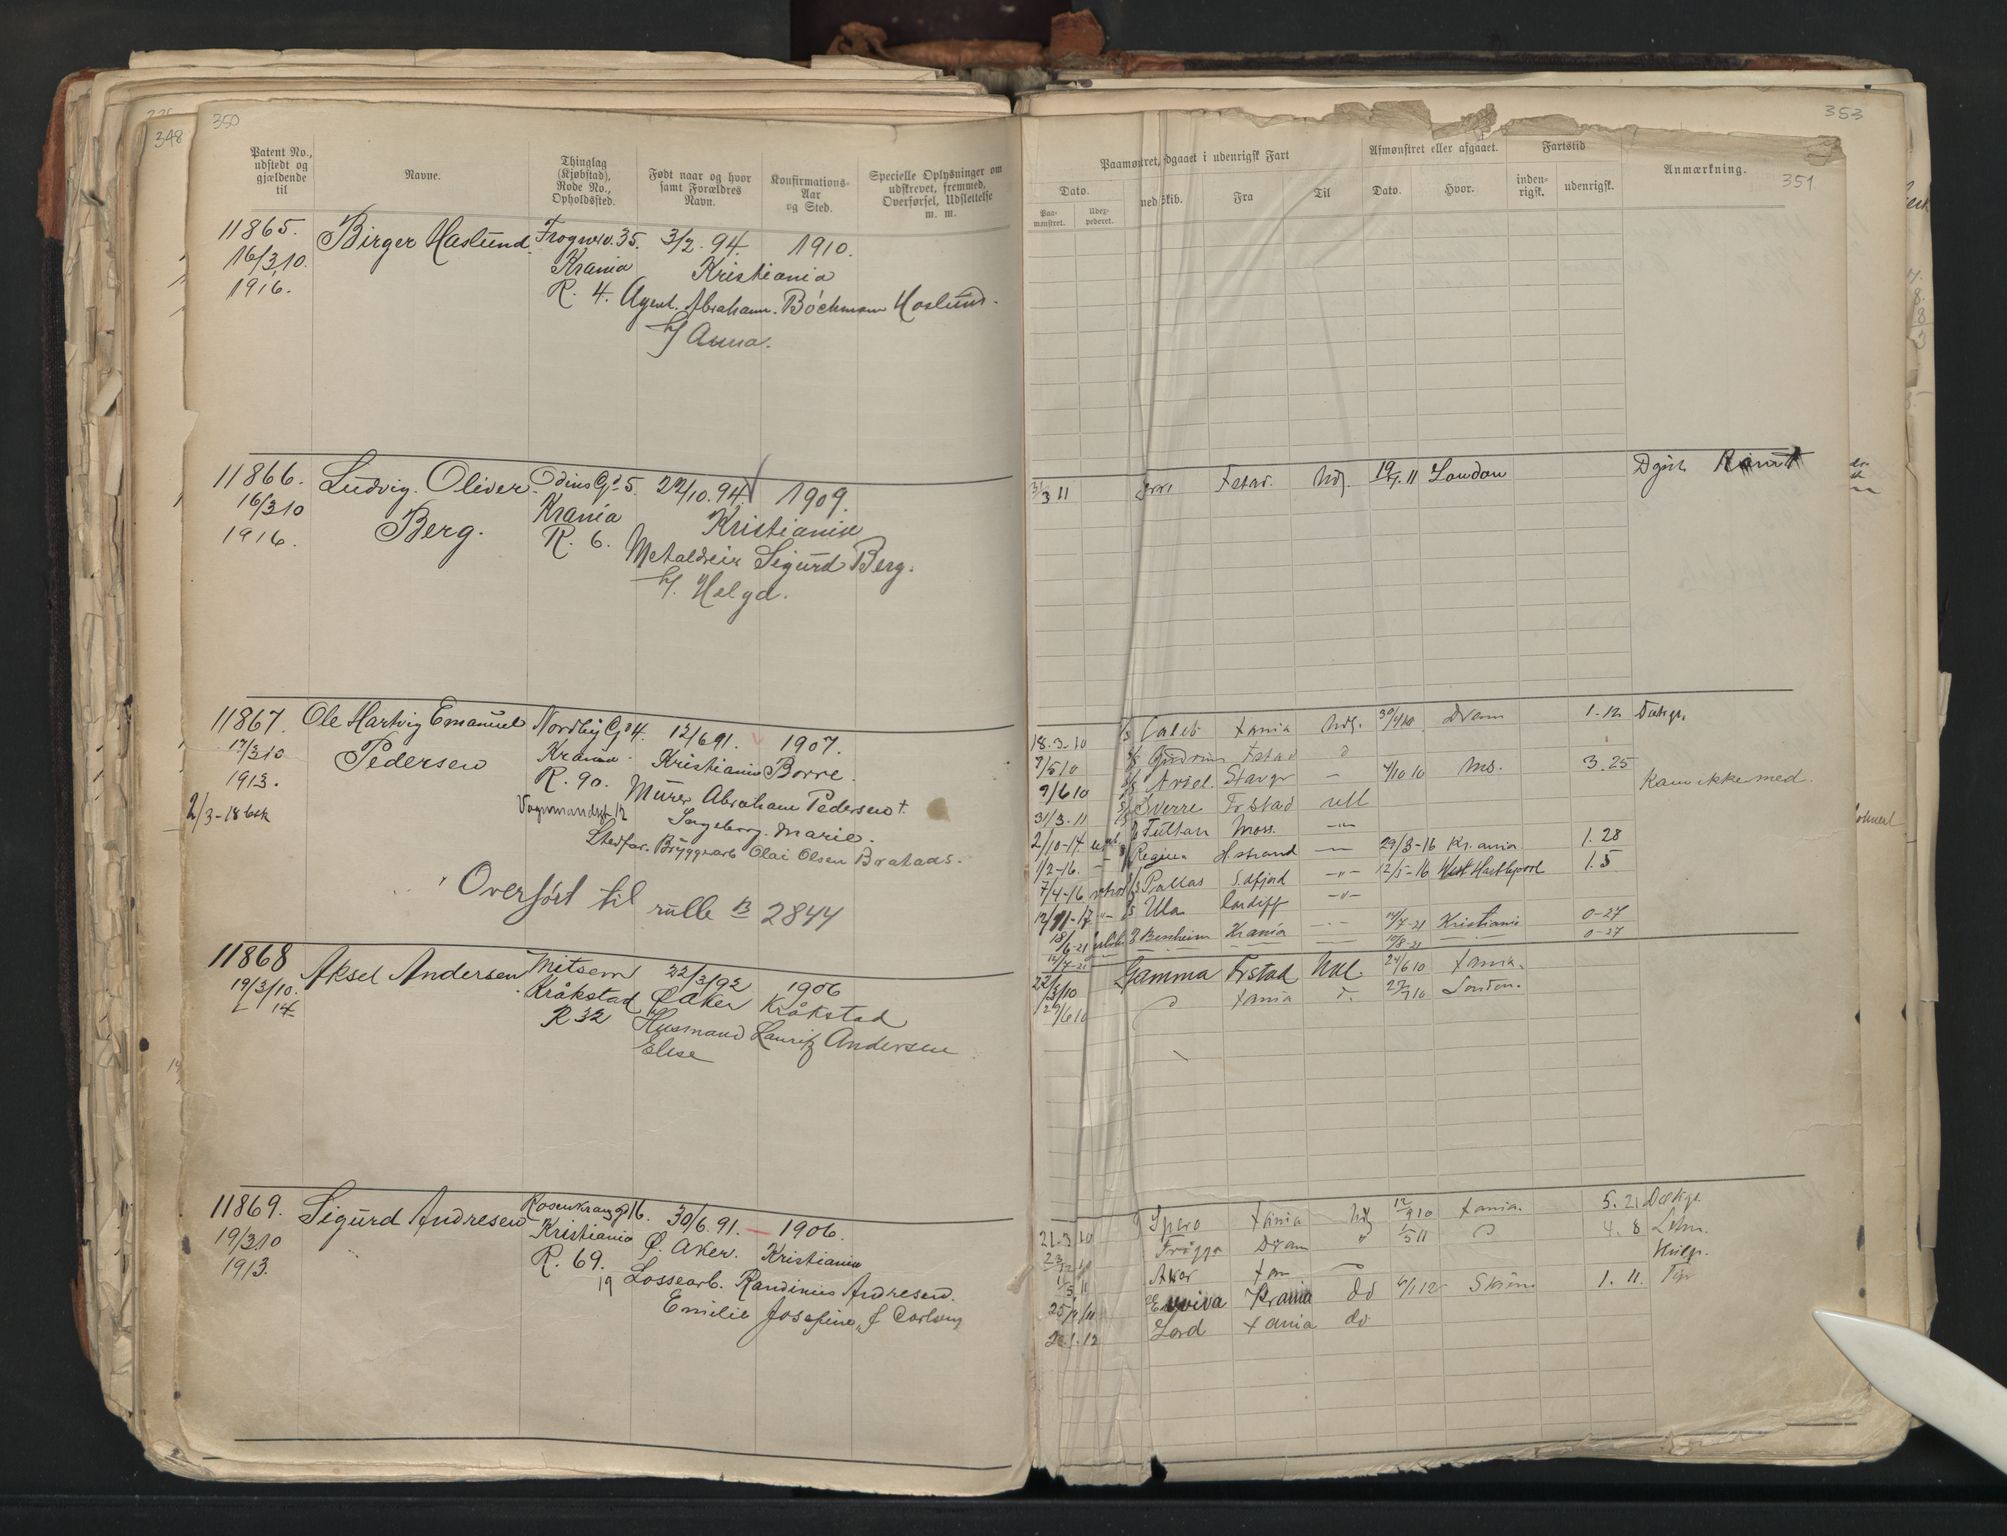 348
350
Patent No., udstedt og gjældende til
Navne.
Thinglag (Kjøbstad), Rode No., Opholdssted.
Født naar og hvor samt Forældres Navn.
Konfirmations-Aar og Sted.
Specielle Oplysninger om udskrevet, fremmed, Overførsel, Udslettelse m. m.
11865. Birger Haslund. Frognerv. 35. 3/2. 94. 1910.
16/3 10. Krania Kristiania
1916. R. 4. Agent. Abraham Bóchman Haslund.
h/ Anna.
11866. Ludvig. Oliver Odins G. 5. 22/10. 94 1909.
16/3 10 Berg. Krania Kristiania
1916. R. 6. Metaldreier Sigurd Berg.
h/. Helga.
11867. Ole Hartvig Emanuel Nordby G. 4. 12/6 91. 1907.
17/3 10 Pedersen Krania. Kristiania Borre.
1913. R. 90. Murer Abraham Pedersen †
2/3-18 Vognmandsgt 12 Ingeborg. Marie.
Stedfar. Bryggearb Olai Olsen
Overført til rulle № 2844
11868 Aksel Andersen Mitsem 22/3/92 1906
19/3/10. Kråkstad Ø Aker Kråkstad
14 R 32 Husmand Lauritz Andersen
Elise
11869. Sigurd Andresen Rosenkranzgt 16. 30/6. 91. — 1906.
19/3 10 Kristiania Ø. Aker. Kristiania
1913. R. 69. Lossearb. Randinius Andresen.
19 Emilie Josefine, f Carlsen
353
351
Paamønstret, udgaaet i udenrigsk Fart
Afmønstret eller afgaaet.
Fartstid
Anmærkning.
Dato.
Paa-mønstret.
Udex-pederet.
med Skib.
Fra
Til
Dato.
Hvor.
inden-rigsk.
udenrigsk.
31/3 11 Fstad. Nds. London
18.3.10 Caleb Xania Nds. 30/4 10 Dram 1.12 Dæksgt.
7/5 10 Gudrun Fstad
9/6 10 Arvel. Stavgr — 4/10 10 Ms. 3.25
31/3.11 Sverre Frstad utl Kam ikke med.
2/10-14 Fultan Moss. —"—
1/2-16. Regina H.strand — 29/3-16 Kr.ania 1.28
7/4-16 Pallas S.dfjord —"— 12/5-16 West Hartlepool 1.5
12/11-17 Ula Cardiff —"—
18/6-21 Bessheim Krania 14/7-21 Kristiania 0-27
12/7-21 — — — 10/8-21 — 0-27
22/3/10 Gamma Frstad Nds. 24/6 10 Xania.
29/6 10 Xania 27/7 10 London.
21.3.10 Spero Xania Nds 12/9 10 Xania. 5.21 Dæksgt.
Frigga Dram " 1/5 11 4.8 Letm.
11/5 11 Akor Xan
25/11/11 Evviva Krania do 6/1 12 Skien 1.11.
20.1.12 Lord Xania do